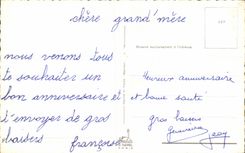 chère grand'mère
nous venons tous
te souhaiter un
bon anniversaire et
t'envoyer de gros
baisers françoise
heureux anniversaire
et bonne santé
gros baisers